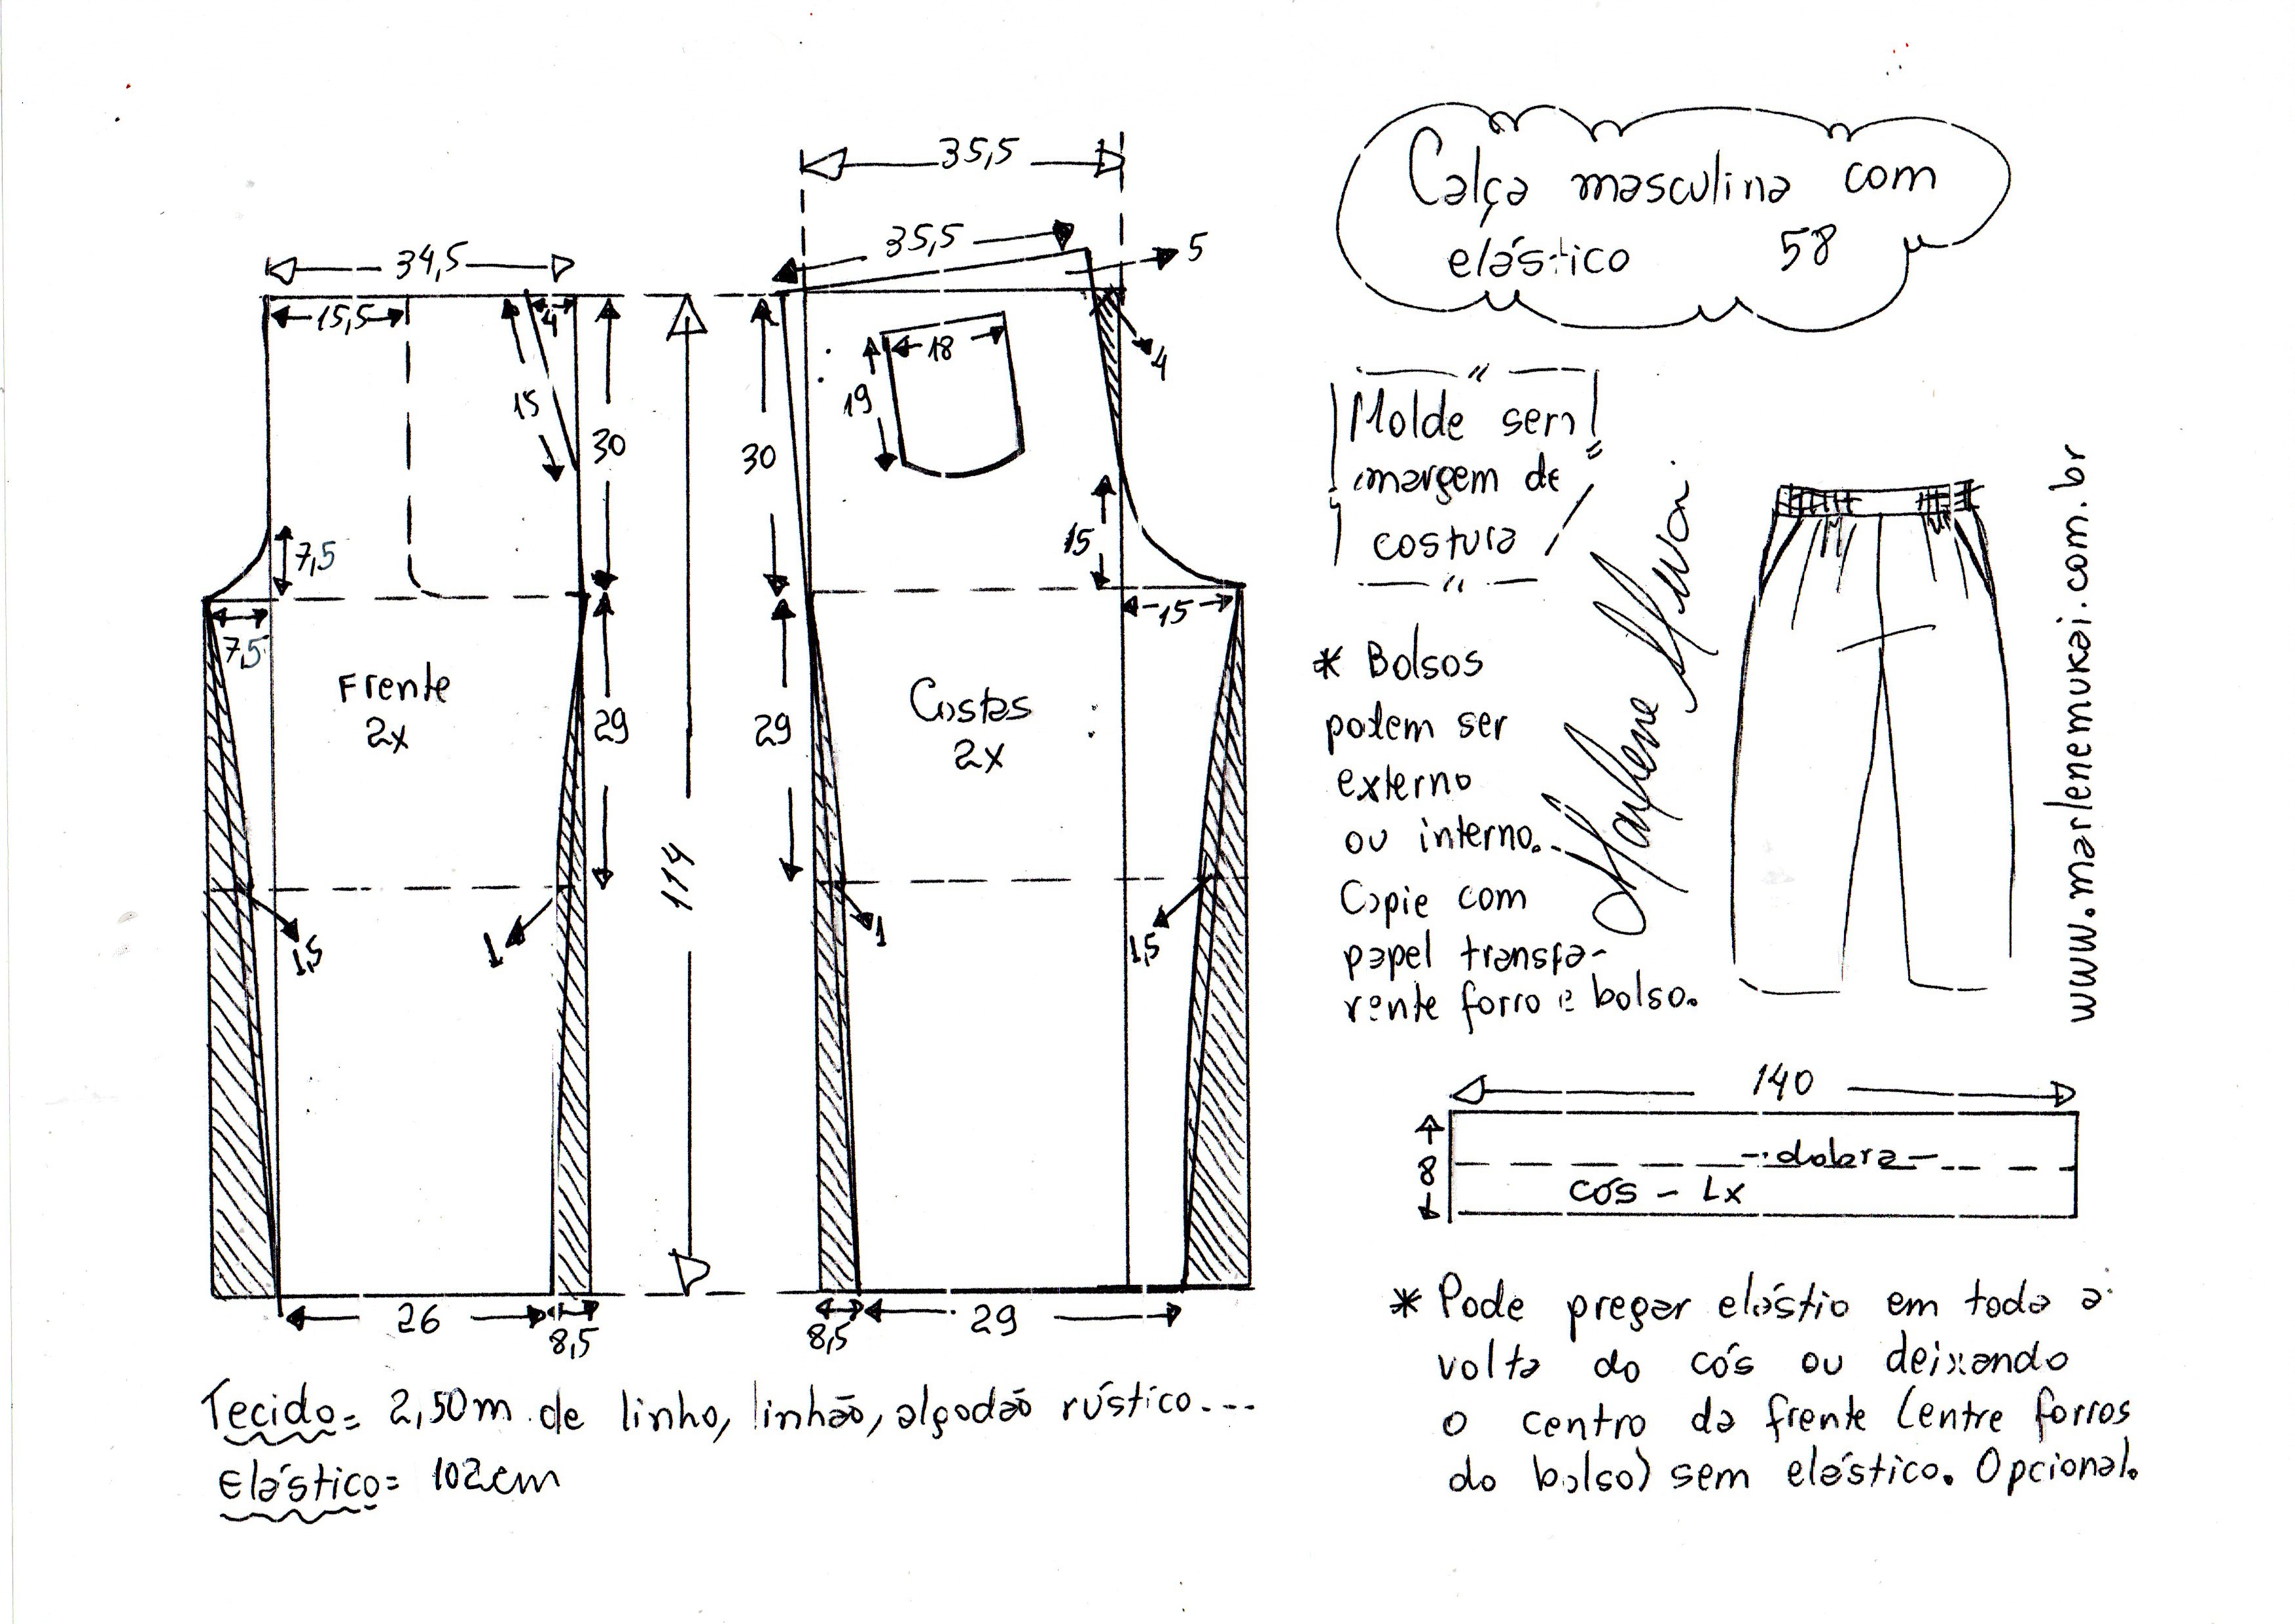 Calça masculina com
elástico 58
35,5
35,5
5
34,5
15,5
4
15
30
7,5
7,5
Frente
2x
29
1,5
1
26
8,5
114
30
18
19
4
15
15
Costas
2x
29
1
1,5
8,5
29
Molde sem
margem de
costura
* Bolsos
podem ser
externo
ou interno.
Copie com
papel transpa-
rente forro e bolso.
Marlene Mukai
www.marlenemukai.com.br
140
8
dobra
cós - 1x
* Pode pregar elástio em toda a
volta do cós ou deixando
o centro da frente (entre forros
do bolso) sem elástico. Opcional.
Tecido= 2,50m de linho, linhão, algodão rústico...
Elástico= 102cm